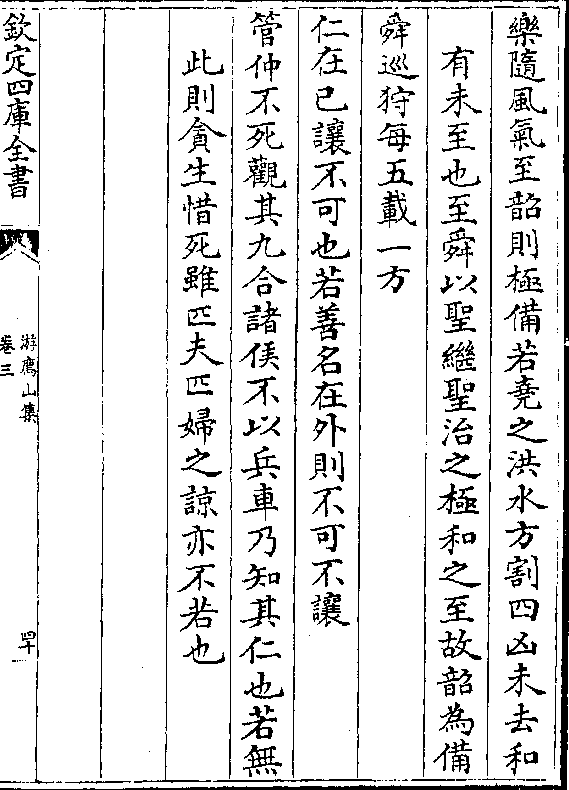 樂隨風氣至韶則極備若堯之洪水方割四凶未去和
有未至也至舜以聖繼聖治之極和之至故韶為備
舜巡狩每五載一方
仁在已讓不可也若善名在外則不可不讓
管仲不死觀其九合諸侯不以兵車乃知其仁也若無
此則貪生惜死雖匹夫匹婦之諒亦不若也
欽定四庫全書
游廌山集
卷三
四十